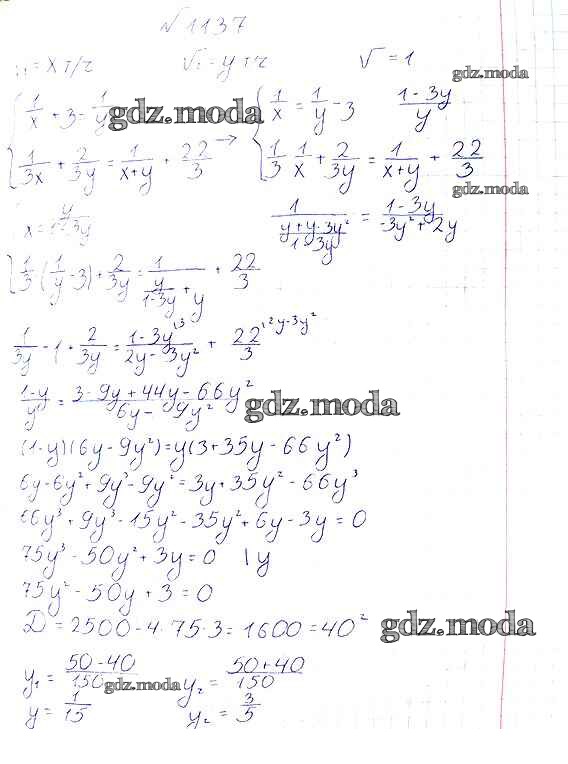 √1137
= x т/ч √ = y т/ч √ = 1
gdz.moda
{ 1/x + 3 = 1/y → { 1/x = 1/y - 3 (1-3y)/y
gdz.moda
1/3x + 2/3y = 1/(x+y) + 22/3 1/3 1/x + 2/3y = 1/(x+y) + 22/3
gdz.moda
x = y/(1-3y) 1/((y+y-3y²)/(1-3y)) = (1-3y)/(-3y²+2y)
1/3 (1/y - 3) + 2/3y = 1/(y/(1-3y) + y) + 22/3
1/3y - 1 + 2/3y = (1-3y)/(2y-3y²) + 22/3
(1-y)/y = (3-9y+44y-66y²)/(6y-9y²)
gdz.moda
(1-y)(6y-9y²)=y(3+35y-66y²)
6y-6y²+9y³-9y²=3y+35y²-66y³
66y³+9y³-15y²-35y²+6y-3y=0
75y³-50y²+3y=0 |y
75y²-50y+3=0
D=2500-4·75·3=1600=40²
gdz.moda
y₁ = (50-40)/150 y₂ = (50+40)/150
gdz.moda
y = 1/15 y₂ = 3/5
gdz.moda